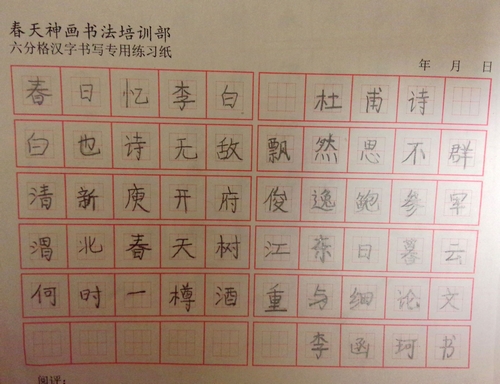 春天神画书法培训部
六分格汉字书写专用练习纸
年 月 日
春日忆李白 杜甫诗
白也诗无敌 飘然思不群
清新庚开府 俊逸鲍参军
渭北春天树 江 日暮云
何时一樽酒 重与细论文
李函珂书
阅评：